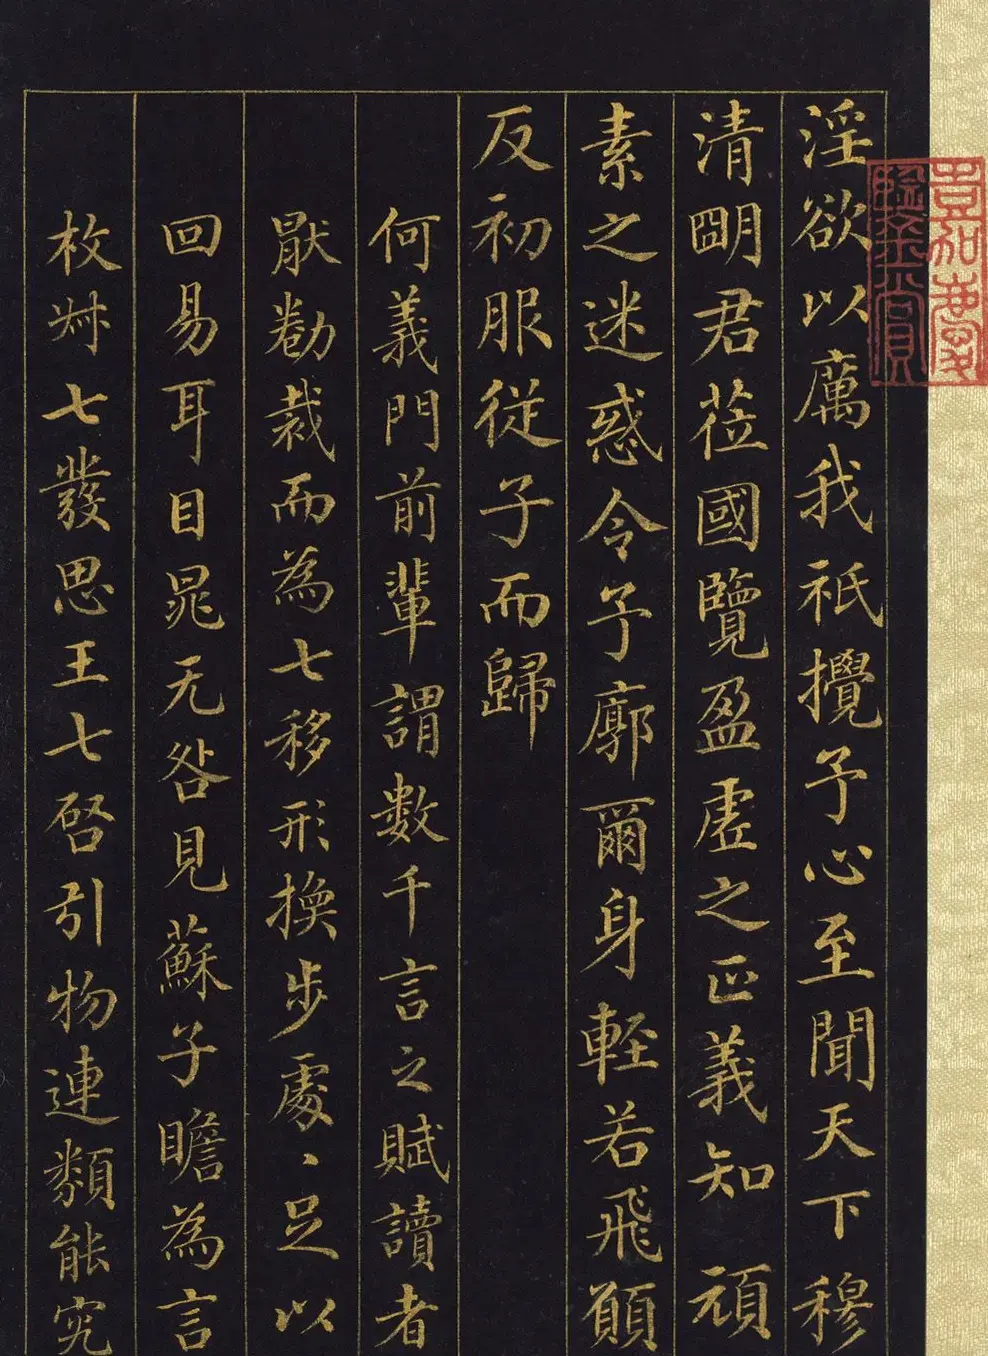 淫欲以厲我祇攪予心至聞天下穆
清朙君莅國覽盈虛之正義知頑
素之迷惑令予廓爾身輕若飛願
反初服從子而歸
何義門前輩謂數千言之賦讀者
厭勌裁而為七移形換步處、足以
回易耳目晁无咎見蘇子瞻為言
枚叔七發思王七啓引物連類能究